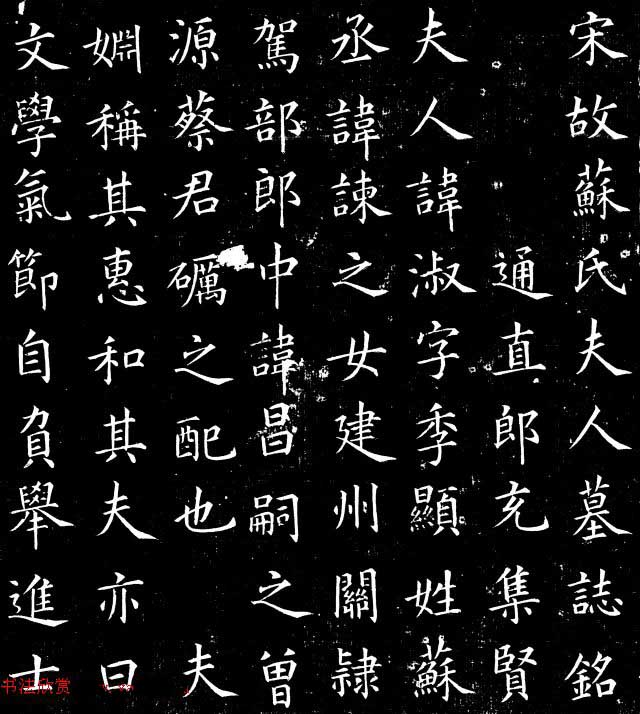 宋故蘇氏夫人墓誌銘
通直郎充集賢
夫人諱淑字季顯姓蘇
丞諱諫之女建州關隸
駕部郎中諱昌嗣之曾
源蔡君礪之配也 夫
婣稱其惠和其夫亦曰
文學氣節自負舉進士
书法欣赏